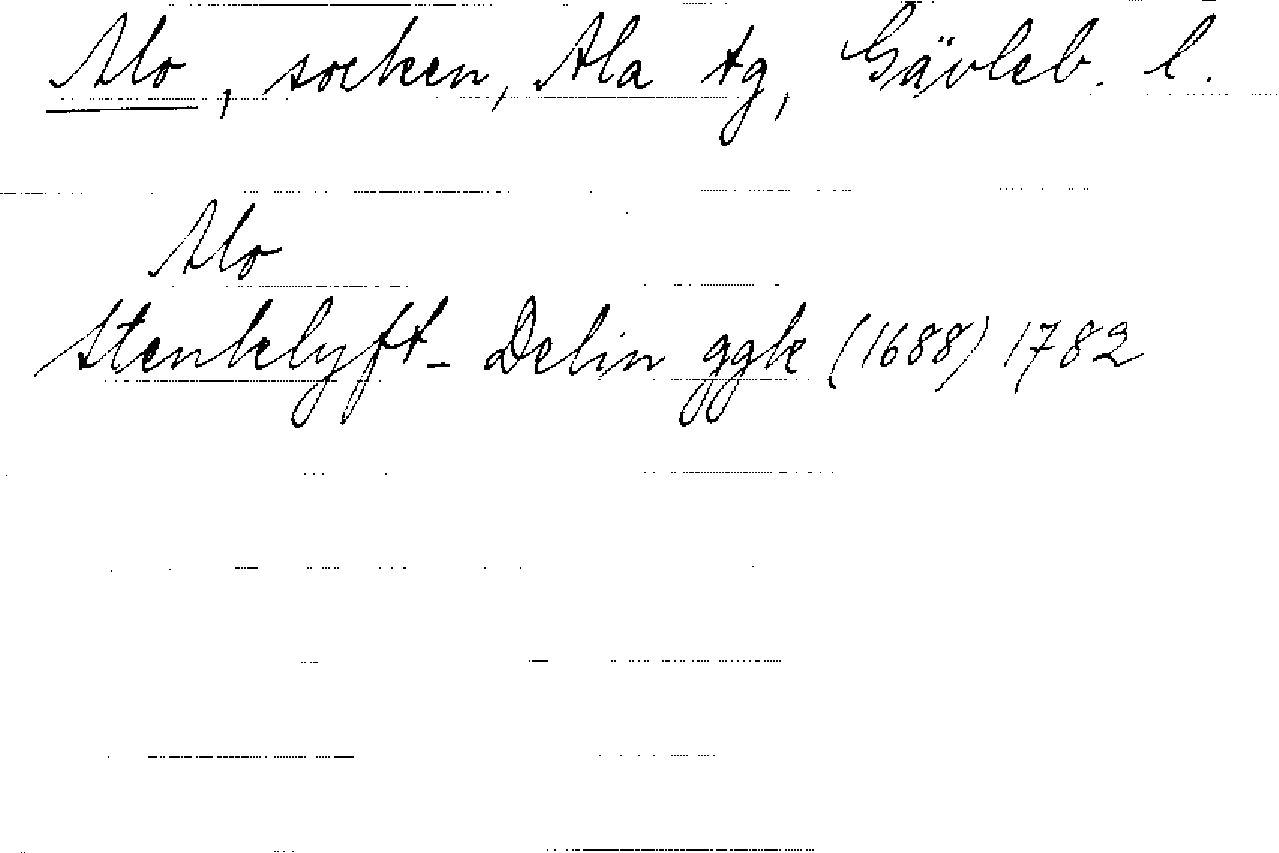 Alo, socken, Ala tg, Gävleb. l.
Alo
Stenklyft- Delin ggk (1688) 1782